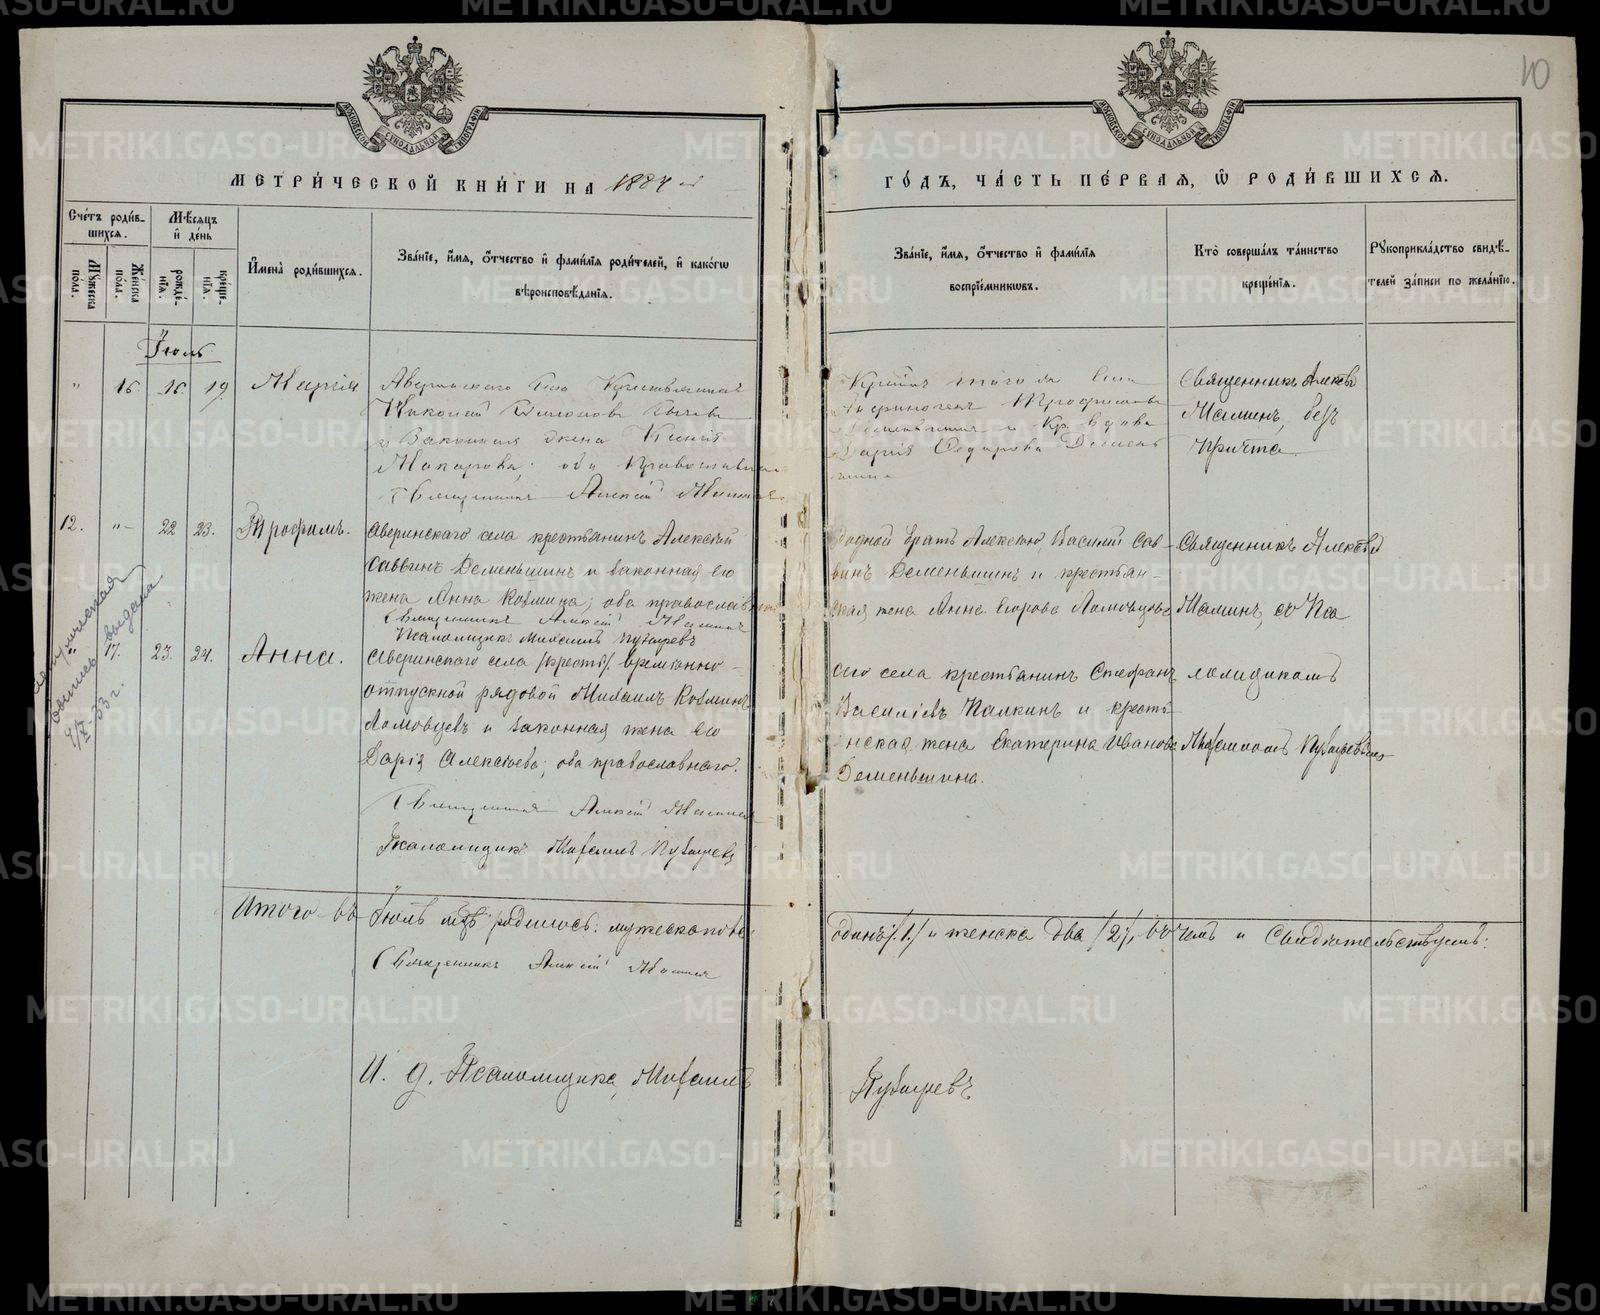 10
МОСКОВСКОЙ СѴНОДАЛЬНОЙ ТИПОГРАФІИ
МОСКОВСКОЙ СѴНОДАЛЬНОЙ ТИПОГРАФІИ
МЕТРИ́ЧЕСКОЙ КНИ́ГИ НА 1884 й
ГО́ДЪ, ЧА́СТЬ ПЕ́РВАЯ, Ѡ РОДИ́ВШИХСЯ.
Сче́тъ роди́в-
шихся.
Му́жеска пола.
Же́нска пола.
Мѣ́сяцъ
и҆ де́нь
рожде́-
нїя.
креще́-
нїя.
И҆мена̀ роди́вшихся.
Зва́нїе, и҆́мя, ѻ҆́тчество и҆ фами́лїя роди́телей, и҆ како́гѡ
вѣроисповѣ́данїя.
Зва́нїе, и҆́мя, ѻ҆́тчество и҆ фами́лїя
воспрїе́мникѡвъ.
Кто̀ соверша́лъ та́инство
креще́нїя.
Рꙋкоприкла́дство свидѣ́-
телей за́писи по жела́нїю.
Іюль
" 16. 16. 19 Марія
Аверинскаго села Крестьянинъ
законная жена Ксенія
Макарова; оба Православнаго
Священникъ Алексій Маминъ
того же села
Трофимовъ
и Кр. вдова
Дарія Сидорова Деменьшина
Священникъ Алексѣй
Маминъ, безъ
Причта.
12. " 22 23. Трофимъ.
Аверинскаго села крестьянинъ Алексѣй
Саввинъ Деменьшинъ и законная его
жена Анна Козмина; оба православнаго
Священникъ Алексій Маминъ
Псаломщикъ Михаилъ Пузыревъ
Родной братъ Алексѣю, Василій Сав-
винъ Деменьшинъ и крестьян-
ская жена Анна Егорова Ломовцова
Священникъ Алексѣй
Маминъ, съ Пса
" 17. 23. 24. Анна.
Аверинскаго села /крест./ временно-
отпускной рядовой Михаилъ Козминъ
Ломовцевъ и законная жена его
Дарія Алексѣева; оба православнаго.
Священникъ Алексій Маминъ
Псаломщикъ Михаилъ Пузыревъ
села крестьянинъ Стефанъ
Василіевъ Палкинъ и кресть
янская жена Екатерина Иванова
Деменьшина.
ломщикомъ
Михаиломъ Пузыревымъ
Метрическая
выпись выдана
4/X-33 г.
Итого въ Іюлѣ м-цѣ родилось: мужеска пола
одинъ /1./ и женска два /2/, въ чемъ и Свидѣтельствуемъ:
Священникъ Алексій Маминъ
И. д. Псаломщика, Михаилъ
Пузыревъ
METRIKI.GASO-URAL.RU